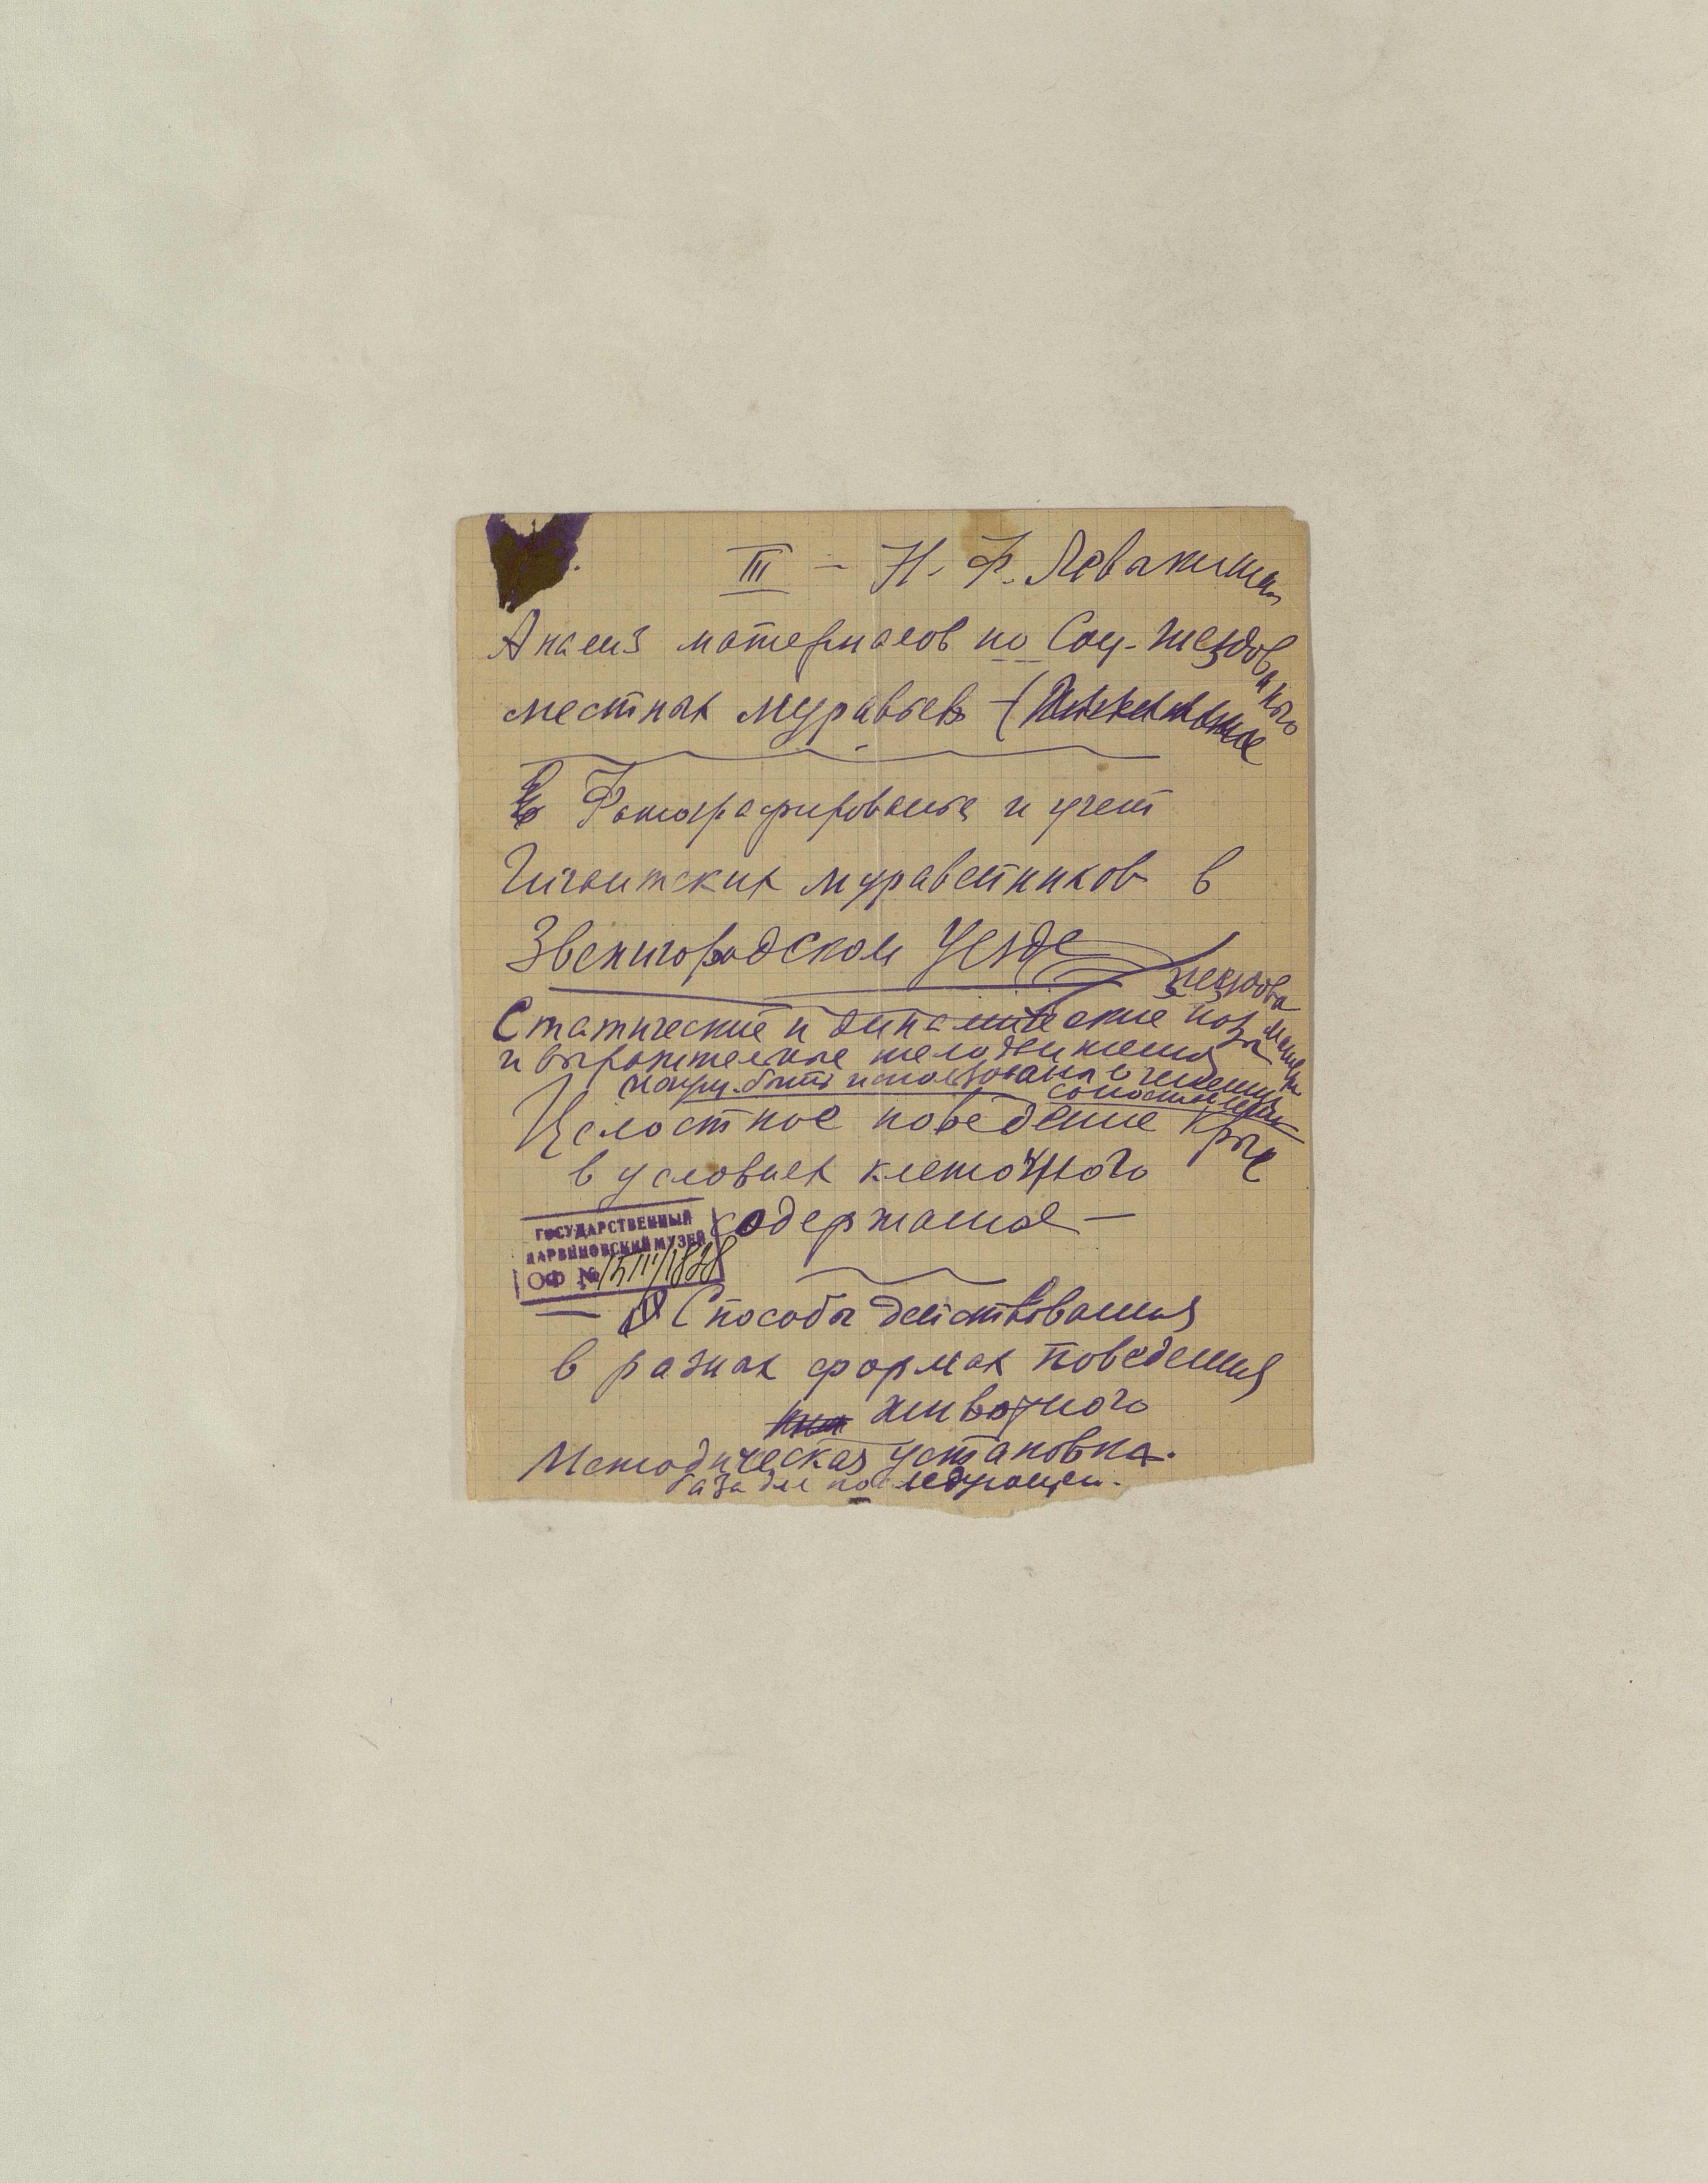 III – Н. Ф. Левакина
Анализ материалов по Соц. гнездованию
местных муравьев – (
Фотографирование и учет
Гигантских муравейников в
Звенигородском Уезде
Статические и динамические позы
и выразительные телодвижения
использованы в
сопоставлении
Целостное поведение Крыс
в условиях клеточного
содержания –
ГОСУДАРСТВЕННЫЙ
ДАРВИНОВСКИЙ МУЗЕЙ
ОФ №
– IV Способы действования
в разных формах поведения
животного
Методическая установка.
база для последующей.